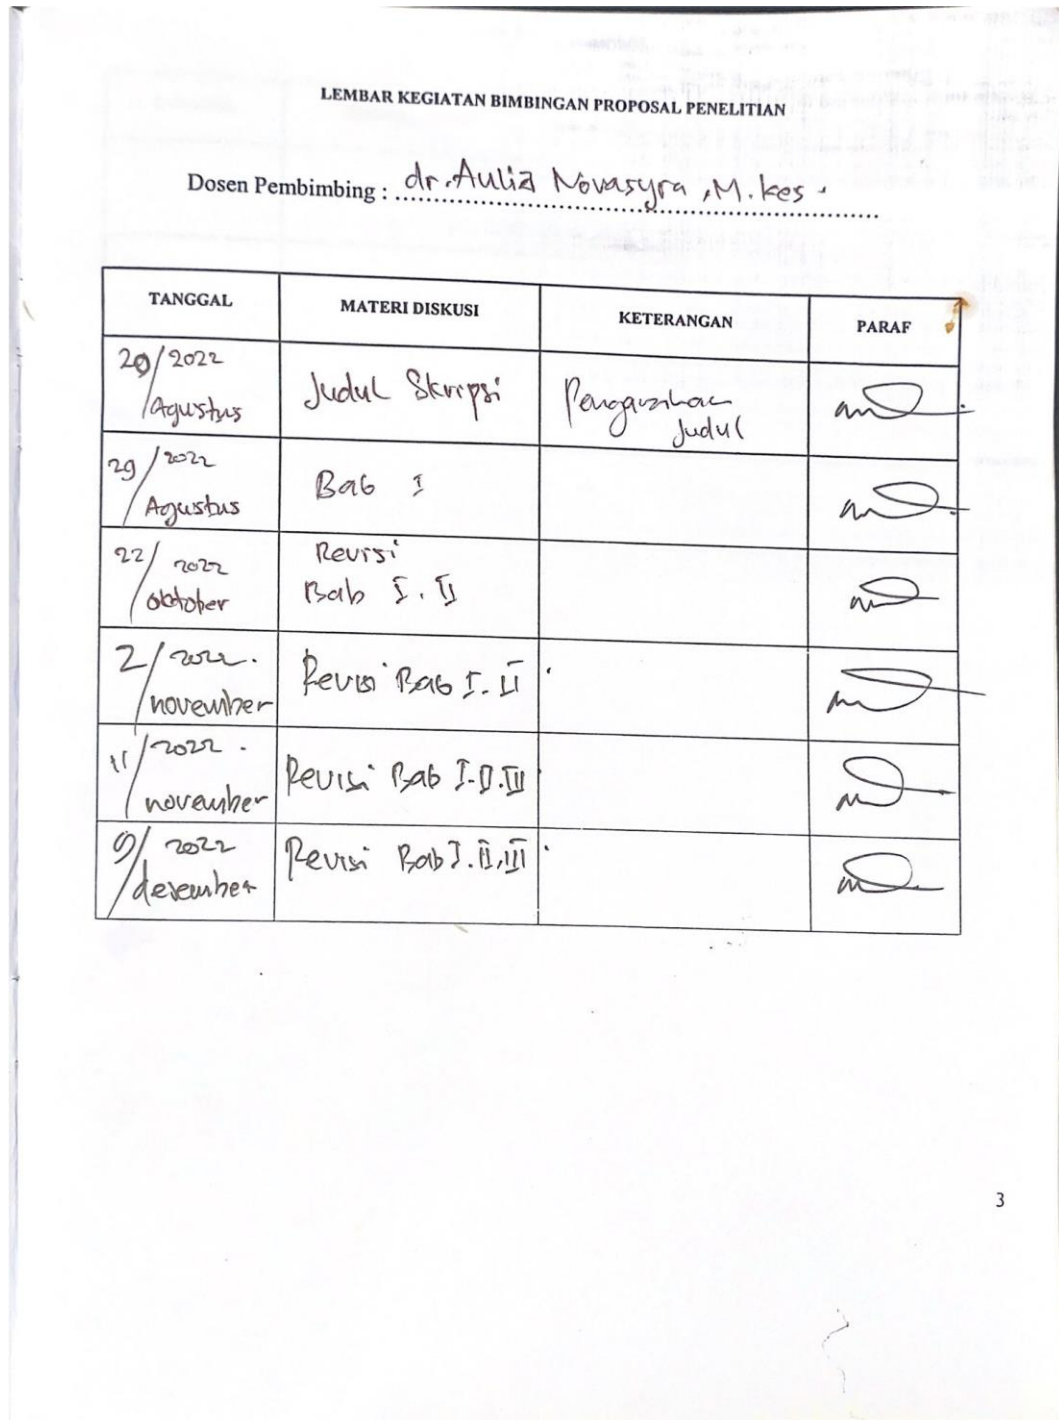 LEMBAR KEGIATAN BIMBINGAN PROPOSAL PENELITIAN
Dosen Pembimbing : dr. Aulia Novasyra, M. kes.
TANGGAL MATERI DISKUSI KETERANGAN PARAF
20/2022
Agustus
Judul Skripsi
Pengarahan
Judul
29/2022
Agustus
Bab I
22/2022
oktober
Revisi
Bab I. II
2/2022.
november
Revisi Bab I. II
11/2022.
november
Revisi Bab I.II.III
9/2022
desember
Revisi Bab I. II, III
3